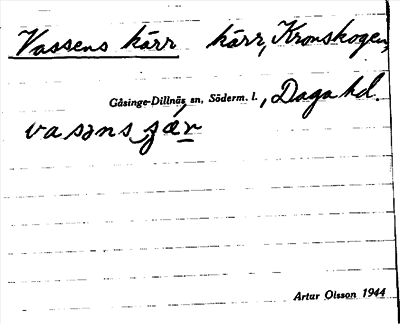 Vassens kärr kärr, Kronskogen,
Gåsinge-Dillnäs sn, Söderm. l., Daga hd.
vasəns
Artur Olsson 1944